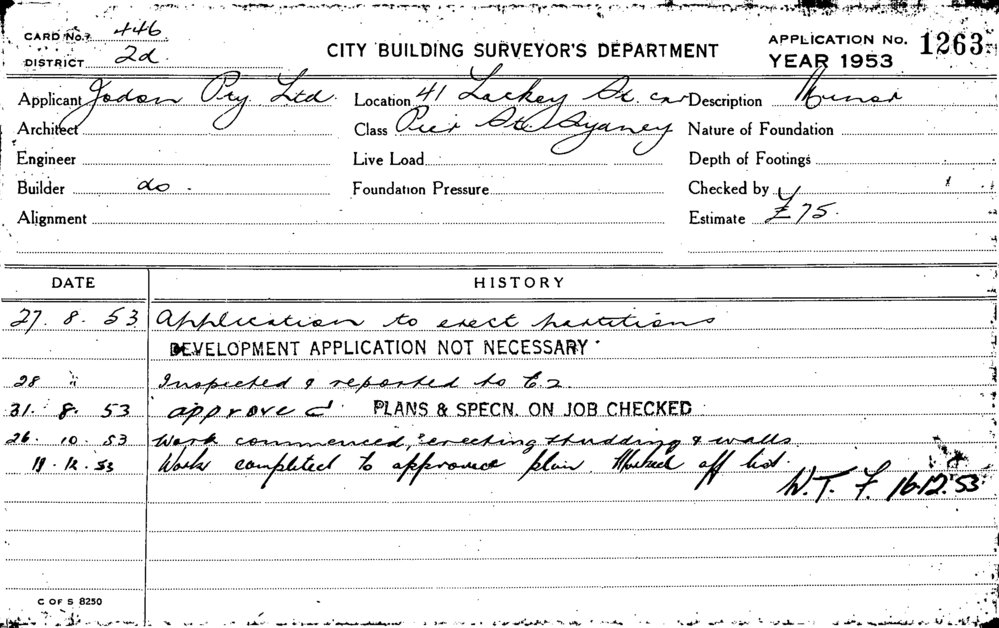 CARD No. 446
DISTRICT 2d
CITY BUILDING SURVEYOR'S DEPARTMENT
APPLICATION No. 1263
YEAR 1953
Applicant Jodon Pty Ltd. Location 41 Lackey St. cnr Description Minor
Architect Class Pier St. Sydney Nature of Foundation
Engineer Live Load Depth of Footings
Builder do. Foundation Pressure Checked by
Alignment Estimate £75.
DATE HISTORY
27. 8. 53 Application to erect partitions
DEVELOPMENT APPLICATION NOT NECESSARY
28 " Inspected & reported to
31. 8. 53 approved PLANS & SPECN. ON JOB CHECKED
26. 10. 53 Work commenced, erecting studding & walls
12. 53 Work completed to approved plan. Marked off list.
W. T. F. 16.12.53
C OF S 8250